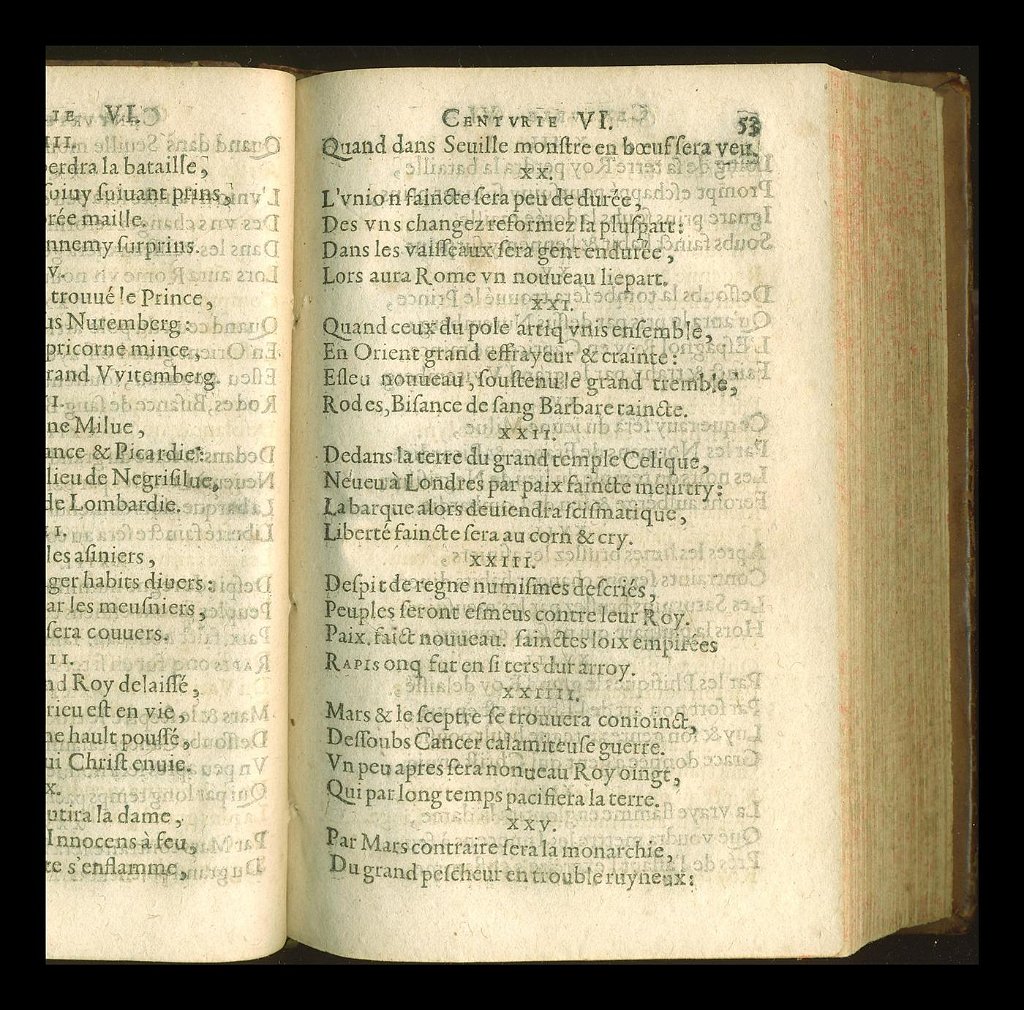 IE VI.
III.
erdra la bataille,
soiuy suiuant prins,
rée maille.
nnemy surprins.
V.
trouué le Prince,
us Nuremberg:
pricorne mince,
rand Vvitemberg.
I.
ne Milue,
ance & Picardie:
lieu de Negrisilue,
de Lombardie.
I.
les asiniers,
ger habits diuers:
ar les meusniers,
sera couuers.
II.
nd Roy delaissé,
rieu est en vie,
ne hault poussé,
ui Christ enuie.
X.
utira la dame,
Innocens à feu,
te s'enflamme,
CENTVRIE VI. 53
Quand dans Seuille monstre en bœuf sera veu.
XX.
L'vnion saincte sera peu de durée,
Des vns changez reformez la pluspart:
Dans les vaisseaux sera gent endurée,
Lors aura Rome vn nouueau liepart.
XXI.
Quand ceux du pole artiq vnis ensemble,
En Orient grand effrayeur & crainte:
Esleu nouueau, soustenu le grand tremble,
Rodes, Bisance de sang Barbare taincte.
XXII.
Dedans la terre du grand temple Celique,
Neueu à Londres par paix faincte meurtry:
La barque alors deuiendra scismatique,
Liberté faincte sera au corn & cry.
XXIII.
Despit de regne numismes descriés,
Peuples seront esmeus contre leur Roy.
Paix, faict nouueau, sainctes loix empirées
RAPIS onq fut en si ters dur arroy.
XXIIII.
Mars & le sceptre se trouuera conioinct,
Dessoubs Cancer calamiteuse guerre.
Vn peu apres sera nonueau Roy oingt,
Qui par long temps pacifiera la terre.
XXV.
Par Mars contraire sera la monarchie,
Du grand pescheur en trouble ruyneux: